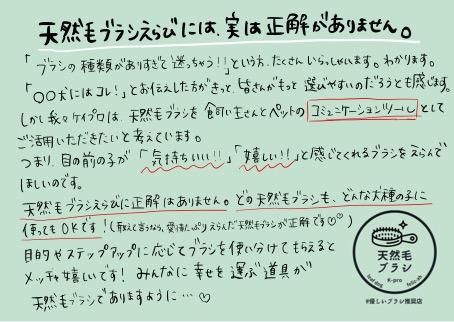 天然毛ブラシえらびには、実は正解がありません。
「ブラシの種類がありすぎて迷っちゃう!!」という方、たくさんいらっしゃいます。わかります。
「〇〇犬にはコレ!」とお伝えした方がきっと、皆さんがもっと選びやすいのだろうとも感じます。
しかし我々ケイプロは、天然毛ブラシを飼い主さんとペットのコミュニケーションツールとして
ご活用いただきたいと考えています。
つまり、目の前の子が「気持ちいい!!」「嬉しい!!」と感じてくれるブラシをえらんで
ほしいのです。
天然毛ブラシえらびに正解はありません。どの天然毛ブラシも、どんな犬種の子に
使ってもOKです!(敢えて言うなら、愛情たっぷりえらんだ天然毛ブラシが正解です♡♡)
目的やステップアップに応じてブラシを使い分けてもらえると
メッチャ嬉しいです!みんなに幸せを運ぶ道具が
天然毛ブラシでありますように…♡
天然毛
ブラシ
K-pro
#優しいブラシ推奨店